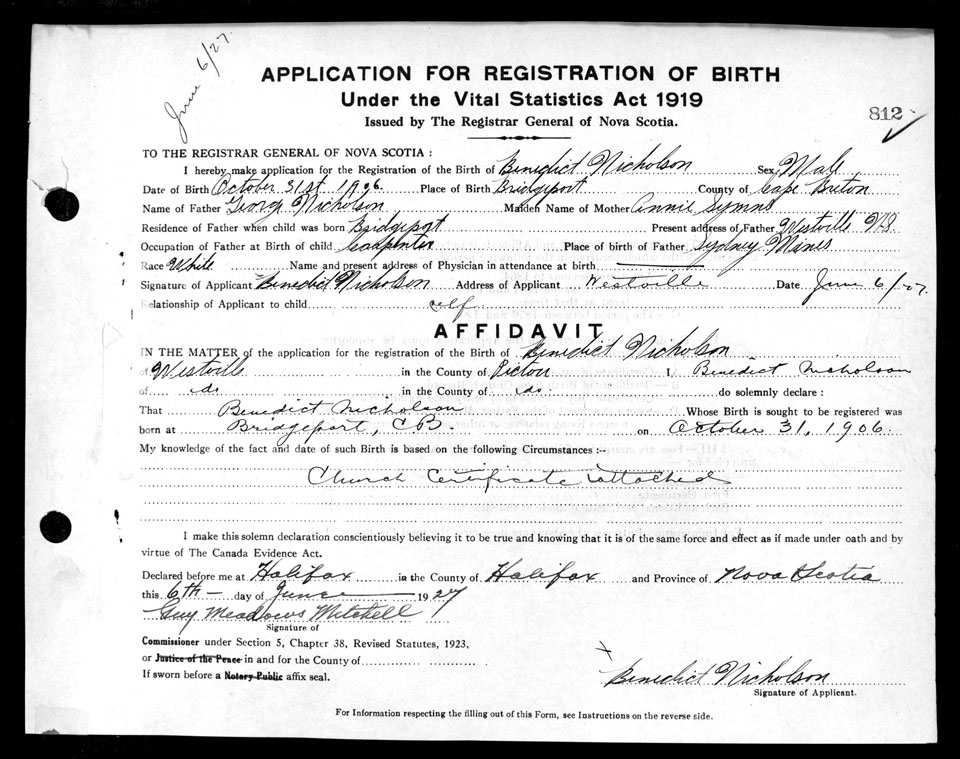 June 6/27.
APPLICATION FOR REGISTRATION OF BIRTH
Under the Vital Statistics Act 1919
812
Issued by The Registrar General of Nova Scotia.
TO THE REGISTRAR GENERAL OF NOVA SCOTIA :
I hereby make application for the Registration of the Birth of Benedict Nicholson Sex Male
Date of Birth October 31st 1906. Place of Birth Bridgeport County of Cape Breton
Name of Father George Nicholson Maiden Name of Mother Annie Symns
Residence of Father when child was born Bridgeport Present address of Father Westville N.S.
Occupation of Father at Birth of child Carpenter Place of birth of Father Sydney Mines
Race White Name and present address of Physician in attendance at birth
Signature of Applicant Benedict Nicholson Address of Applicant Westville Date June 6/-27.
Relationship of Applicant to child self
AFFIDAVIT
IN THE MATTER of the application for the registration of the Birth of Benedict Nicholson
of Westville in the County of Pictou I, Benedict Nicholson
of do in the County of do. do solemnly declare :
That Benedict Nicholson Whose Birth is sought to be registered was
born at Bridgeport, C.B. on October 31, 1906.
My knowledge of the fact and date of such Birth is based on the following Circumstances :-
Church Certificate attached
I make this solemn declaration conscientiously believing it to be true and knowing that it is of the same force and effect as if made under oath and by
virtue of The Canada Evidence Act.
Declared before me at Halifax in the County of Halifax and Province of Nova Scotia
this 6th day of June 1927
Guy Meadows Mitchell
Signature of
Commissioner under Section 5, Chapter 38, Revised Statutes, 1923,
or Justice of the Peace in and for the County of
If sworn before a Notary Public affix seal.
x
Benedict Nicholson
Signature of Applicant.
For Information respecting the filling out of this Form, see Instructions on the reverse side.